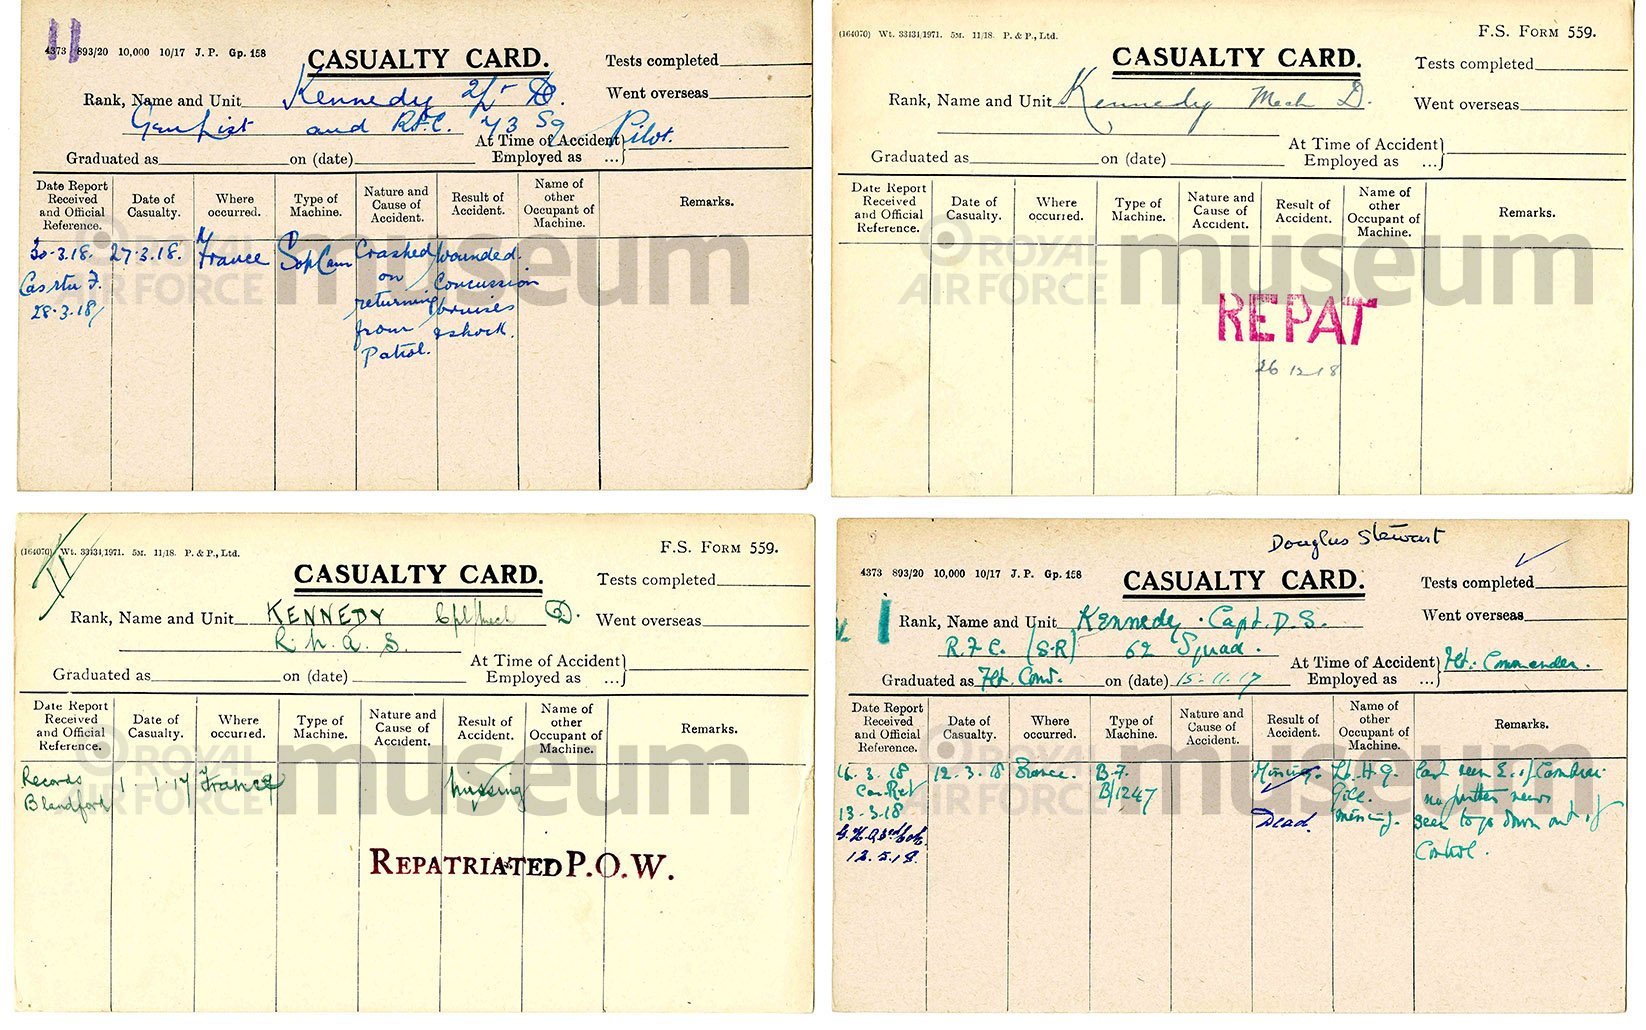 11
4373 893/20 10,000 10/17 J. P. Gp. 158
CASUALTY CARD.
Tests completed
Rank, Name and Unit Kennedy 2/Lt D.
Went overseas
Gen List and R.F.C. 73 Sq
At Time of Accident Employed as ... Pilot.
Graduated as on (date)
Date Report Received and Official Reference.
Date of Casualty.
Where occurred.
Type of Machine.
Nature and Cause of Accident.
Result of Accident.
Name of other Occupant of Machine.
Remarks.
30.3.18. 27.3.18. France Sop Cam Crashed wounded.
on concussion
returning bruises
28.3.18/
from & shock.
Patrol.
ROYAL AIR FORCE museum
(164070) Wt. 33434/1971. 5M. 11/18. P. & P., Ltd.
F.S. FORM 559.
CASUALTY CARD.
Tests completed
Rank, Name and Unit Kennedy Mech D.
Went overseas
At Time of Accident Employed as ...
Graduated as on (date)
Date Report Received and Official Reference.
Date of Casualty.
Where occurred.
Type of Machine.
Nature and Cause of Accident.
Result of Accident.
Name of other Occupant of Machine.
Remarks.
REPAT
26 12 18
ROYAL AIR FORCE museum
II
(164070) Wt. 33434/1971. 5M. 11/18. P. & P., Ltd.
F.S. FORM 559.
CASUALTY CARD.
Tests completed
Rank, Name and Unit KENNEDY Cpl/Mech D.
Went overseas
R.N.A.S.
At Time of Accident Employed as ...
Graduated as on (date)
Date Report Received and Official Reference.
Date of Casualty.
Where occurred.
Type of Machine.
Nature and Cause of Accident.
Result of Accident.
Name of other Occupant of Machine.
Remarks.
Records 1.1.17 France Missing
Blandford
REPATRIATED P.O.W.
ROYAL AIR FORCE museum
Douglas Stewart
4373 893/20 10,000 10/17 J. P. Gp. 158
CASUALTY CARD.
Tests completed
Rank, Name and Unit Kennedy. Capt. D.S.
Went overseas
R.F.C. (S.R) 62 Squad.
At Time of Accident Employed as ... Flt. Commander.
Graduated as Flt. Com. on (date) 15.11.17
Date Report Received and Official Reference.
Date of Casualty.
Where occurred.
Type of Machine.
Nature and Cause of Accident.
Result of Accident.
Name of other Occupant of Machine.
Remarks.
16.3.18 12.3.18 France. B.F. Missing. Lt. H.G. last seen E. of Cambrai
Cas. Ret B/1247 Gill. no further news
13.3.18 Dead. missing. seen to go down out of
12.5.18. Control.
ROYAL AIR FORCE museum